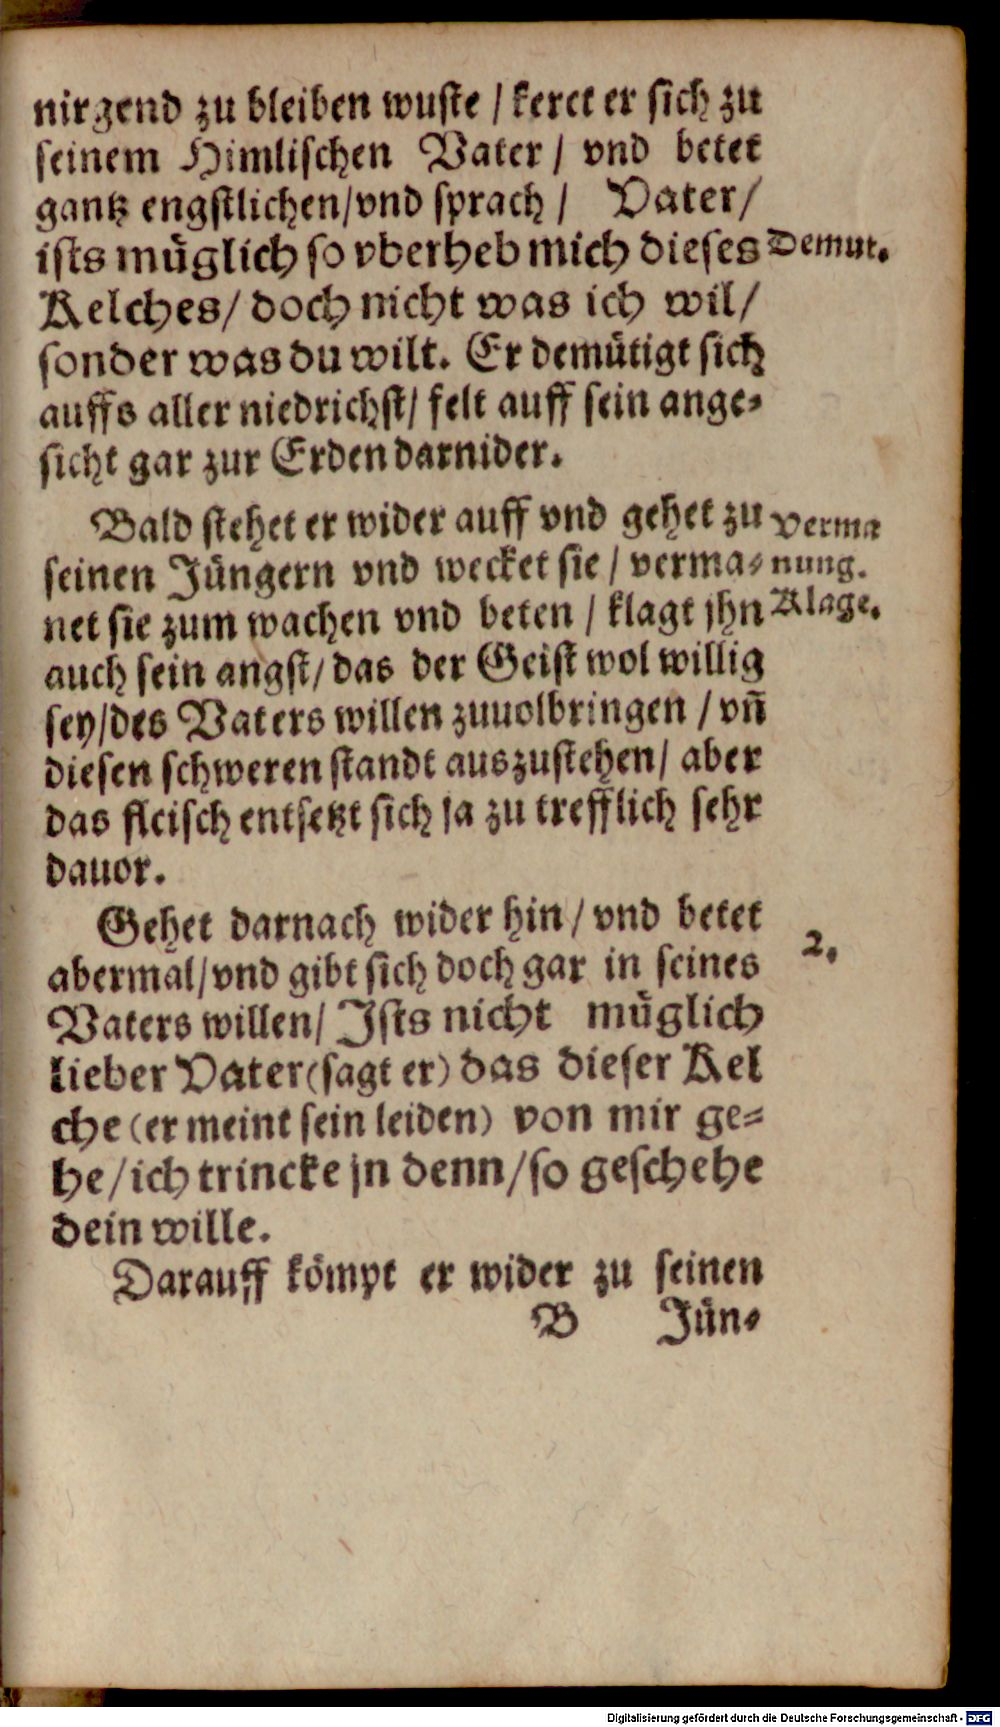 nirgend zu bleiben wuste / keret er sich zu
seinem Himlischen Vater / vnd betet
gantz engstlichen/vnd sprach / Vater/
ists müglich so vberheb mich dieses
Demut.
Kelches/ doch nicht was ich wil/
sonder was du wilt. Er demütigt sich
auffs aller niedrichst/ felt auff sein ange-
sicht gar zur Erden darnider.
Bald stehet er wider auff vnd gehet zu
Verma
seinen Jüngern vnd wecket sie / verma-
nung.
net sie zum wachen vnd beten / klagt jhn
Klage.
auch sein angst/ das der Geist wol willig
sey/des Vaters willen zuuolbringen / vñ
diesen schweren standt auszustehen/ aber
das fleisch entsetzt sich ja zu trefflich sehr
dauor.
Gehet darnach wider hin / vnd betet
2.
abermal/vnd gibt sich doch gar in seines
Vaters willen/ Ists nicht müglich
lieber Vater (sagt er) das dieser Kel
che (er meint sein leiden) von mir ge-
he/ich trincke jn denn/so geschehe
dein wille.
Darauff kömpt er wider zu seinen
B Jün-
Digitalisierung gefördert durch die Deutsche Forschungsgemeinschaft - DFG